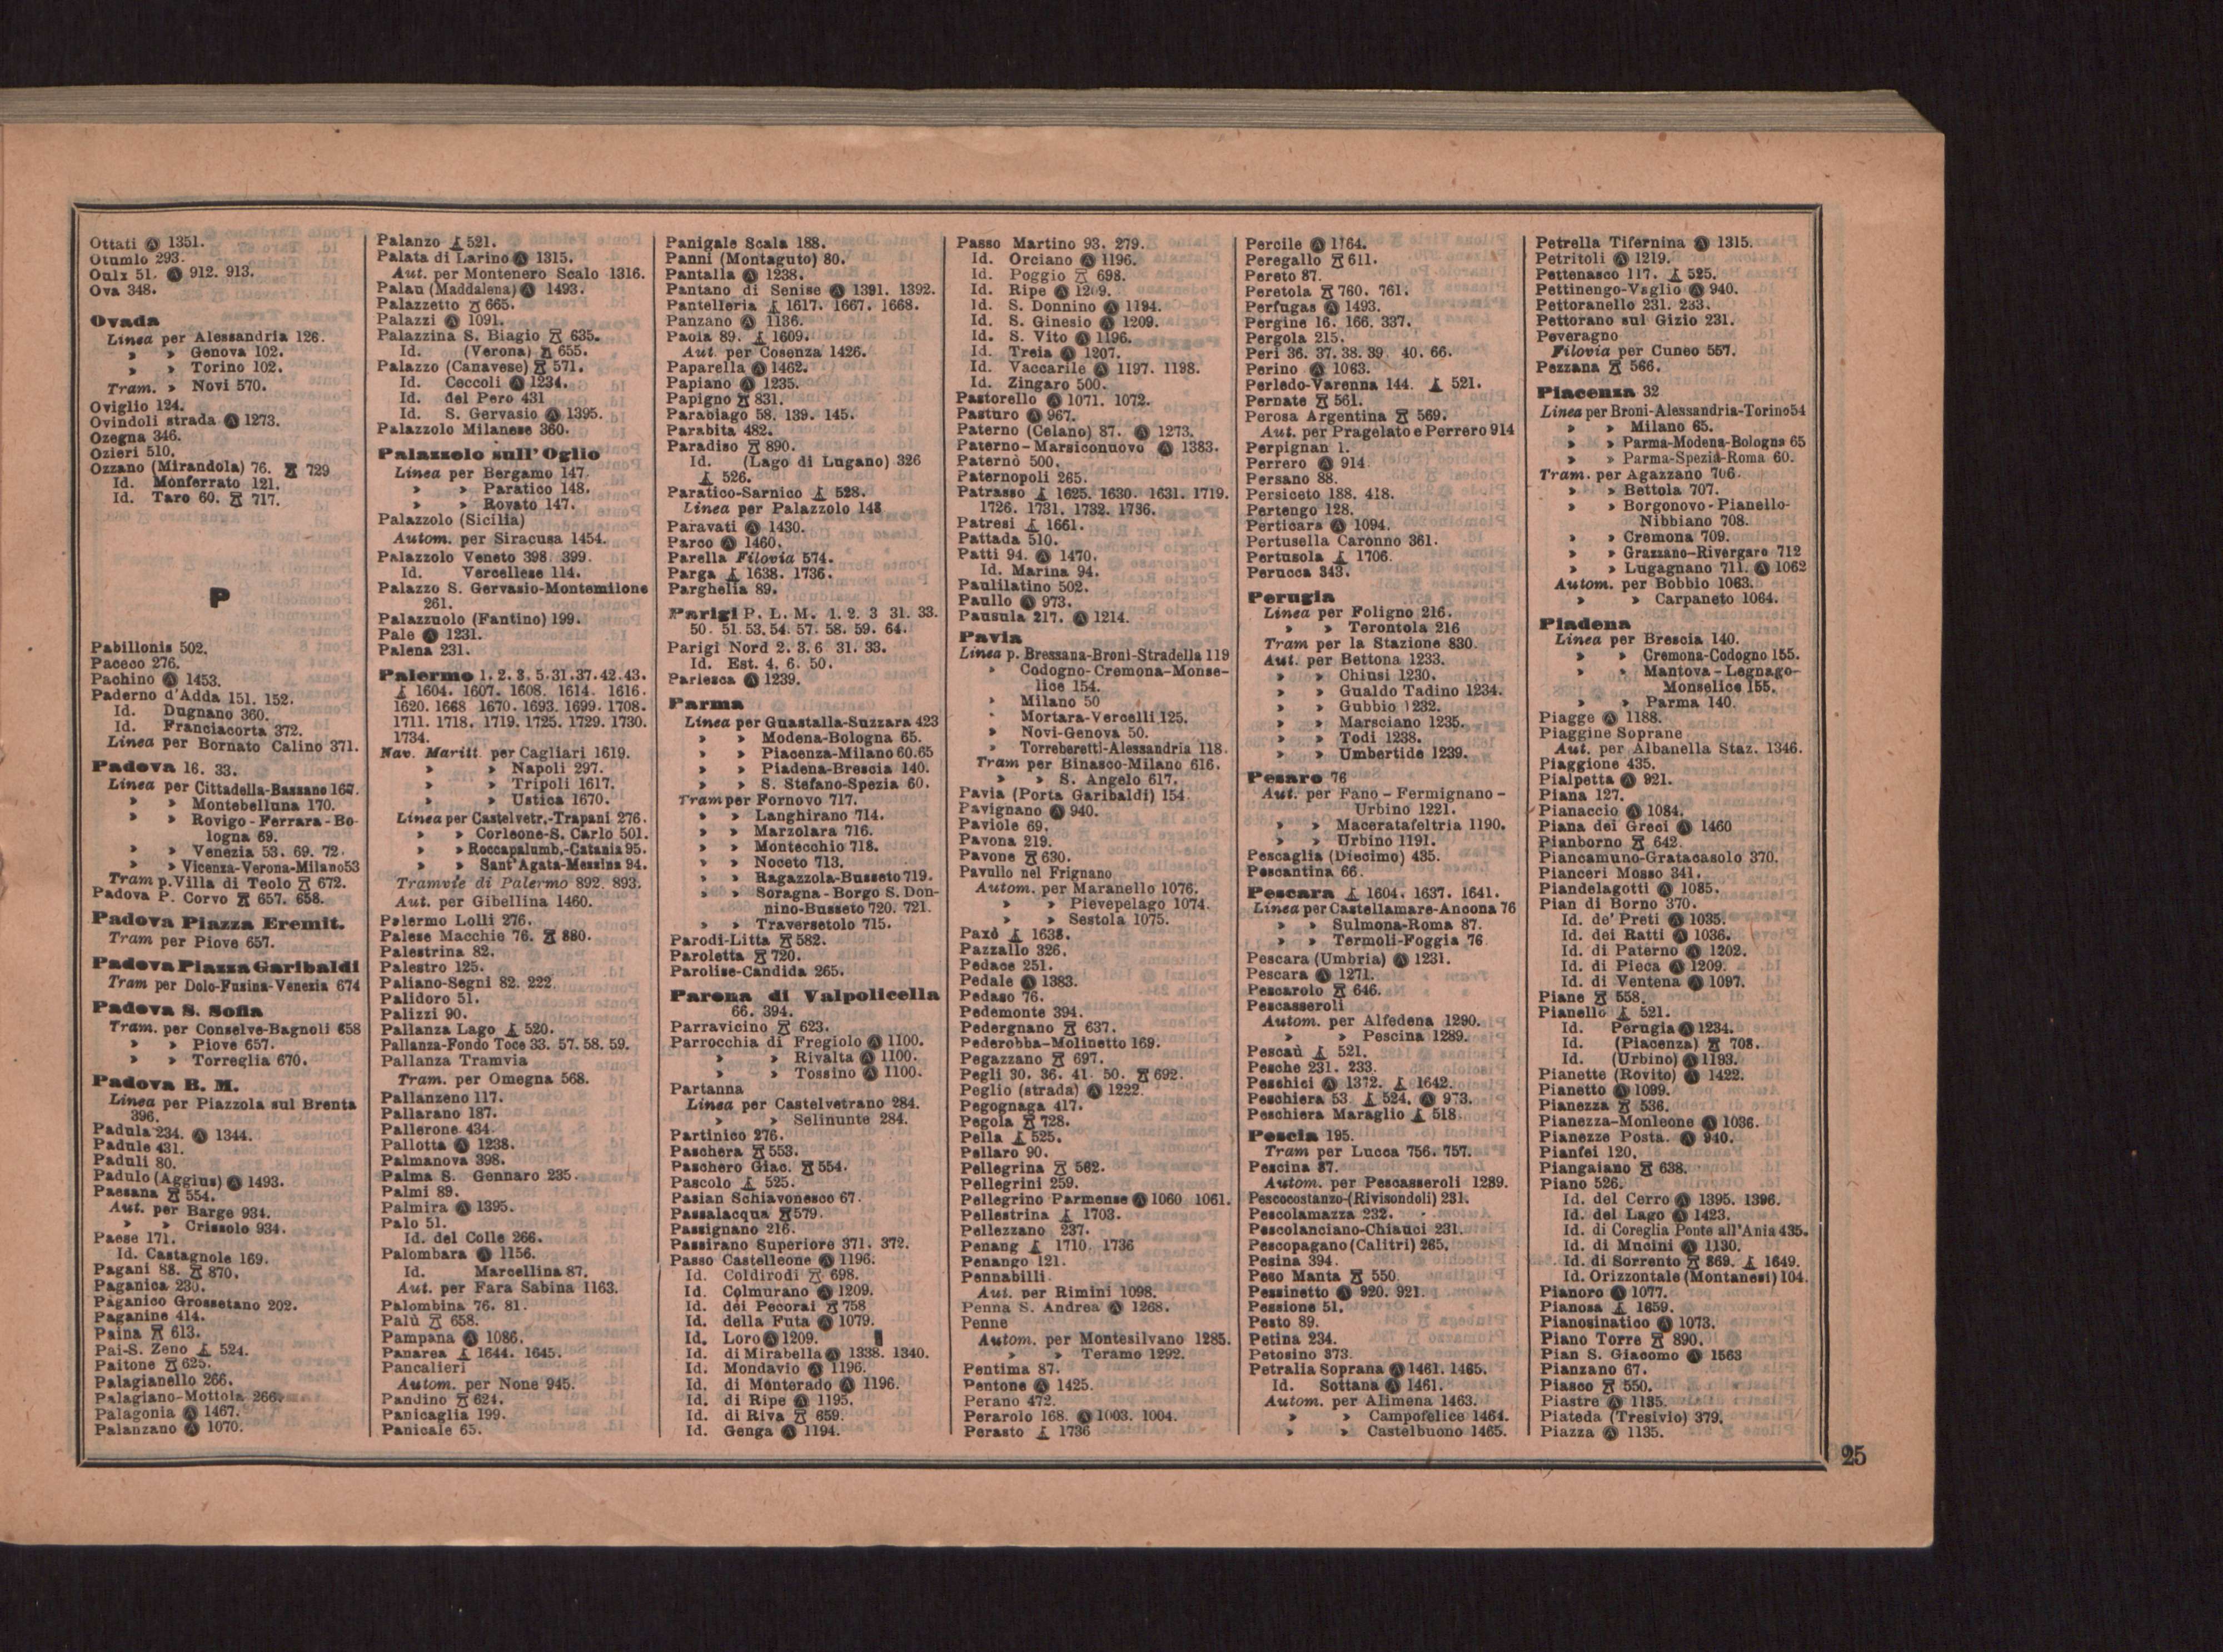 Ottati Ⓐ 1351.
Otumlo 293.
Oulx 51. Ⓐ 912. 913.
Ova 348.
Ovada
Linea per Alessandria 126.
» » Genova 102.
» » Torino 102.
Tram. » Novi 570.
Oviglio 124.
Ovindoli strada Ⓐ 1273.
Ozegna 346.
Ozieri 510.
Ozzano (Mirandola) 76. 729
Id. Monferrato 121.
Id. Taro 60. 717.
P
Pabillonis 502.
Paceco 276.
Pachino Ⓐ 1453.
Paderno d'Adda 151. 152.
Id. Dugnano 360.
Id. Franciacorta 372.
Linea per Bornato Calino 371.
Padova 16. 33.
Linea per Cittadella-Bassano 167.
» » Montebelluna 170.
» » Rovigo-Ferrara-Bo-
logna 69.
» » Venezia 53. 69. 72.
» » Vicenza-Verona-Milano 53
Tram p. Villa di Teolo 672.
Padova P. Corvo 657. 658.
Padova Piazza Eremit.
Tram per Piove 657.
Padova Piazza Garibaldi
Tram per Dolo-Fusina-Venezia 674
Padova S. Sofia
Tram. per Conselve-Bagnoli 658
» » Piove 657.
» » Torreglia 670.
Padova B. M.
Linea per Piazzola sul Brenta
396.
Padula 234. Ⓐ 1344.
Padule 431.
Paduli 80.
Padulo (Aggius) Ⓐ 1493.
Paesana 554.
Aut. per Barge 934.
» » Crissolo 934.
Paese 171.
Id. Castagnole 169.
Pagani 88. 870.
Paganica 230.
Paganico Grossetano 202.
Paganine 414.
Paina 613.
Pai-S. Zeno 524.
Paitone 625.
Palagianello 266.
Palagiano-Mottola 266.
Palagonia Ⓐ 1467.
Palanzano Ⓐ 1070.
Palanzo 521.
Palata di Larino Ⓐ 1315.
Aut. per Montenero Scalo 1316.
Palau (Maddalena) Ⓐ 1493.
Palazzetto 665.
Palazzi Ⓐ 1091.
Palazzina S. Biagio 635.
Id. (Verona) 655.
Palazzo (Canavese) 571.
Id. Ceccoli Ⓐ 1234.
Id. del Pero 431
Id. S. Gervasio Ⓐ 1395.
Palazzolo Milanese 360.
Palazzolo sull'Oglio
Linea per Bergamo 147.
» » Paratico 148.
» » Rovato 147.
Palazzolo (Sicilia)
Autom. per Siracusa 1454.
Palazzolo Veneto 398. 399.
Id. Vercellese 114.
Palazzo S. Gervasio-Montemilone
261.
Palazzuolo (Fantino) 199.
Pale Ⓐ 1231.
Palena 231.
Palermo 1. 2. 3. 5. 31. 37. 42. 43.
1604. 1607. 1608. 1614. 1616.
1620. 1668 1670. 1693. 1699. 1708.
1711. 1718. 1719. 1725. 1729. 1730.
1734.
Nav. Maritt. per Cagliari 1619.
» » Napoli 297.
» » Tripoli 1617.
» » Ustica 1670.
Linea per Castelvetr.-Trapani 276.
» » Corleone-S. Carlo 501.
» » Roccapalumb.-Catania 95.
» » Sant'Agata-Messina 94.
Tramvie di Palermo 892. 893.
Aut. per Gibellina 1460.
Palermo Lolli 276.
Palese Macchie 76. 880.
Palestrina 82.
Palestro 125.
Paliano-Segni 82. 222
Palidoro 51.
Palizzi 90.
Pallanza Lago 520.
Pallanza-Fondo Toce 33. 57. 58. 59.
Pallanza Tramvia
Tram. per Omegna 568.
Pallanzeno 117.
Pallarano 187.
Pallerone 434.
Pallotta Ⓐ 1238.
Palmanova 398.
Palma S. Gennaro 235.
Palmi 89.
Palmira Ⓐ 1395.
Palo 51.
Id. del Colle 266.
Palombara Ⓐ 1156.
Id. Marcellina 87.
Aut. per Fara Sabina 1163.
Palombina 76. 81.
Palù 658.
Pampana Ⓐ 1086.
Panarea 1644. 1645.
Pancalieri
Autom. per None 945.
Pandino 624.
Panicaglia 199.
Panicale 65.
Panigale Scala 188.
Panni (Montaguto) 80.
Pantalla Ⓐ 1238.
Pantano di Senise Ⓐ 1391. 1392.
Pantelleria 1617. 1667. 1668.
Panzano Ⓐ 1136.
Paola 89. 1609.
Aut. per Cosenza 1426.
Paparella Ⓐ 1462.
Papiano Ⓐ 1235.
Papigno 831.
Parabiago 58. 139. 145.
Parabita 482.
Paradiso 890.
Id. (Lago di Lugano) 326
526.
Paratico-Sarnico 528.
Linea per Palazzolo 148
Paravati Ⓐ 1430.
Parco Ⓐ 1460.
Parella Filovia 574.
Parga 1638. 1736.
Parghelia 89.
Parigi P. L. M. 1. 2. 3 31. 33.
50. 51. 53. 54. 57. 58. 59. 64.
Parigi Nord 2. 3. 6 31. 33.
Id. Est. 4. 6. 50.
Parlesca Ⓐ 1239.
Parma
Linea per Guastalla-Suzzara 423
» » Modena-Bologna 65.
» » Piacenza-Milano 60. 65
» » Piadena-Brescia 140.
» » S. Stefano-Spezia 60.
Tram per Fornovo 717.
» » Langhirano 714.
» » Marzolara 716.
» » Montecchio 718.
» » Noceto 713.
» » Ragazzola-Busseto 719.
» » Soragna-Borgo S. Don-
nino-Busseto 720. 721.
» » Traversetolo 715.
Parodi-Litta 582.
Paroletta 720.
Parolise-Candida 265.
Parona di Valpolicella
66. 394.
Parravicino 623.
Parrocchia di Fregiolo Ⓐ 1100.
» » Rivalta Ⓐ 1100.
» » Tossino Ⓐ 1100.
Partanna
Linea per Castelvetrano 284.
» » Selinunte 284.
Partinico 276.
Paschera 553.
Paschero Giac. 554.
Pascolo 525.
Pasian Schiavonesco 67.
Passalacqua 579.
Passignano 216.
Passirano Superiore 371. 372.
Passo Castelleone Ⓐ 1196.
Id. Coldirodi 698.
Id. Colmurano Ⓐ 1209.
Id. dei Pecorai 758
Id. della Futa Ⓐ 1079.
Id. Loro Ⓐ 1209.
Id. di Mirabella Ⓐ 1338. 1340.
Id. Mondavio Ⓐ 1196.
Id. di Monterado Ⓐ 1196.
Id. di Ripe Ⓐ 1195.
Id. di Riva 659.
Id. Genga Ⓐ 1194.
Passo Martino 93. 279.
Id. Orciano Ⓐ 1196.
Id. Poggio 698.
Id. Ripe Ⓐ 1209.
Id. S. Donnino Ⓐ 1194.
Id. S. Ginesio Ⓐ 1209.
Id. S. Vito Ⓐ 1196.
Id. Treia Ⓐ 1207.
Id. Vaccarile Ⓐ 1197. 1198.
Id. Zingaro 500.
Pastorello Ⓐ 1071. 1072.
Pasturo Ⓐ 967.
Paterno (Celano) 87. Ⓐ 1273.
Paterno-Marsiconuovo Ⓐ 1383.
Paternò 500.
Paternopoli 265.
Patrasso 1625. 1630. 1631. 1719.
1726. 1731. 1732. 1736.
Patresi 1661.
Pattada 510.
Patti 94. Ⓐ 1470.
Id. Marina 94.
Paulilatino 502.
Paullo Ⓐ 973.
Pausula 217. Ⓐ 1214.
Pavia
Linea p. Bressana-Broni-Stradella 119
» Codogno-Cremona-Monse-
lice 154.
» Milano 50
» Mortara-Vercelli 125.
» Novi-Genova 50.
» Torreberetti-Alessandria 118.
Tram per Binasco-Milano 616.
» » S. Angelo 617.
Pavia (Porta Garibaldi) 154
Pavignano Ⓐ 940.
Paviole 69.
Pavona 219.
Pavone 630.
Pavullo nel Frignano
Autom. per Maranello 1076.
» » Pievepelago 1074.
» » Sestola 1075.
Paxò 1638.
Pazzallo 326.
Pedace 251.
Pedale Ⓐ 1383.
Pedaso 76.
Pedemonte 394.
Pedergnano 637.
Pederobba-Molinetto 169.
Pegazzano 697.
Pegli 30. 36. 41. 50. 692.
Peglio (strada) Ⓐ 1222.
Pegognaga 417.
Pegola 728.
Pella 525.
Pellaro 90.
Pellegrina 562.
Pellegrini 259.
Pellegrino Parmense Ⓐ 1060 1061.
Pellestrina 1703.
Pellezzano 237.
Penang 1710. 1736
Penango 121.
Pennabilli.
Aut. per Rimini 1098.
Penna S. Andrea Ⓐ 1268.
Penne
Autom. per Montesilvano 1285.
» » Teramo 1292.
Pentima 87.
Pentone Ⓐ 1425.
Perano 472.
Perarolo 168. Ⓐ 1003. 1004.
Perasto 1736
Percile Ⓐ 1164.
Peregallo 611.
Pereto 87.
Peretola 760. 761.
Perfugas Ⓐ 1493.
Pergine 16. 166. 337.
Pergola 215.
Peri 36. 37. 38. 39. 40. 66.
Perino Ⓐ 1063.
Perledo-Varenna 144. 521.
Pernate 561.
Perosa Argentina 569.
Aut. per Pragelato e Perrero 914
Perpignan 1.
Perrero Ⓐ 914
Persano 88.
Persiceto 188. 418.
Pertengo 128.
Perticara Ⓐ 1094.
Pertusella Caronno 361.
Pertusola 1706.
Perucca 343.
Perugia
Linea per Foligno 216.
» » Terontola 216
Tram per la Stazione 830.
Aut. per Bettona 1233.
» » Chiusi 1230.
» » Gualdo Tadino 1234.
» » Gubbio 1232.
» » Marsciano 1235.
» » Todi 1238.
» » Umbertide 1239.
Pesaro 76
Aut. per Fano-Fermignano-
Urbino 1221.
» » Maceratafeltria 1190.
» » Urbino 1191.
Pescaglia (Diecimo) 435.
Pescantina 66.
Pescara 1604. 1637. 1641.
Linea per Castellamare-Ancona 76
» » Sulmona-Roma 87.
» » Termoli-Foggia 76
Pescara (Umbria) Ⓐ 1231.
Pescara Ⓐ 1271.
Pescarolo 646.
Pescasseroli
Autom. per Alfedena 1290.
» » Pescina 1289.
Pescaù 521.
Pesche 231. 233.
Peschici Ⓐ 1372. 1642.
Peschiera 53 524. Ⓐ 973.
Peschiera Maraglio 518
Pescia 195.
Tram per Lucca 756. 757.
Pescina 87.
Autom. per Pescasseroli 1289.
Pescocostanzo-(Rivisondoli) 231.
Pescolamazza 232.
Pescolanciano-Chiauci 231.
Pescopagano (Calitri) 265.
Pesina 394.
Peso Manta 550
Pessinetto Ⓐ 920. 921.
Pessione 51.
Pesto 89.
Petina 234.
Petosino 373.
Petralia Soprana Ⓐ 1461. 1465.
Id. Sottana Ⓐ 1461.
Autom. per Alimena 1463.
» » Campofelice 1464.
» » Castelbuono 1465.
Petrella Tifernina Ⓐ 1315.
Petritoli Ⓐ 1219.
Pettenasco 117. 525.
Pettinengo-Vaglio Ⓐ 940.
Pettoranello 231. 233.
Pettorano sul Gizio 231.
Peveragno
Filovia per Cuneo 557.
Pezzana 566.
Piacenza 32
Linea per Broni-Alessandria-Torino 54
» » Milano 65.
» » Parma-Modena-Bologna 65
» » Parma-Spezia-Roma 60.
Tram. per Agazzano 706.
» » Bettola 707.
» » Borgonovo-Pianello-
Nibbiano 708.
» » Cremona 709.
» » Grazzano-Rivergaro 712
» » Lugagnano 711. Ⓐ 1062
Autom. per Bobbio 1063.
» » Carpaneto 1064.
Piadena
Linea per Brescia 140.
» » Cremona-Codogno 155.
» » Mantova-Legnago-
Monselice 155.
» » Parma 140.
Piagge Ⓐ 1188.
Piaggine Soprane
Aut. per Albanella Staz. 1346.
Piaggione 435.
Pialpetta Ⓐ 921.
Piana 127.
Pianaccio Ⓐ 1084.
Piana dei Greci Ⓐ 1460
Pianborno 642.
Piancamuno-Gratacasolo 370.
Pianceri Mosso 341.
Piandelagotti Ⓐ 1085.
Pian di Borno 370.
Id. de' Preti Ⓐ 1035.
Id. dei Ratti Ⓐ 1036.
Id. di Paterno Ⓐ 1202.
Id. di Pieca Ⓐ 1209.
Id. di Ventena Ⓐ 1097.
Piane 558.
Pianello 521.
Id. Perugia Ⓐ 1234.
Id. (Piacenza) 708.
Id. (Urbino) Ⓐ 1193.
Pianette (Rovito) Ⓐ 1422.
Pianetto Ⓐ 1099.
Pianezza 536.
Pianezza-Monleone Ⓐ 1036.
Pianezze Posta. Ⓐ 940.
Pianfei 120.
Piangaiano 638.
Piano 526.
Id. del Cerro Ⓐ 1395. 1396.
Id. del Lago Ⓐ 1423.
Id. di Coreglia Ponte all'Ania 435.
Id. di Mucini Ⓐ 1130.
Id. di Sorrento 869. 1649.
Id. Orizzontale (Montanesi) 104.
Pianoro Ⓐ 1077.
Pianosa 1659.
Pianosinatico Ⓐ 1073.
Piano Torre 890.
Pian S. Giacomo Ⓐ 1563
Pianzano 67.
Piasco 550.
Piastre Ⓐ 1135.
Piateda (Tresivio) 379.
Piazza Ⓐ 1135.
25